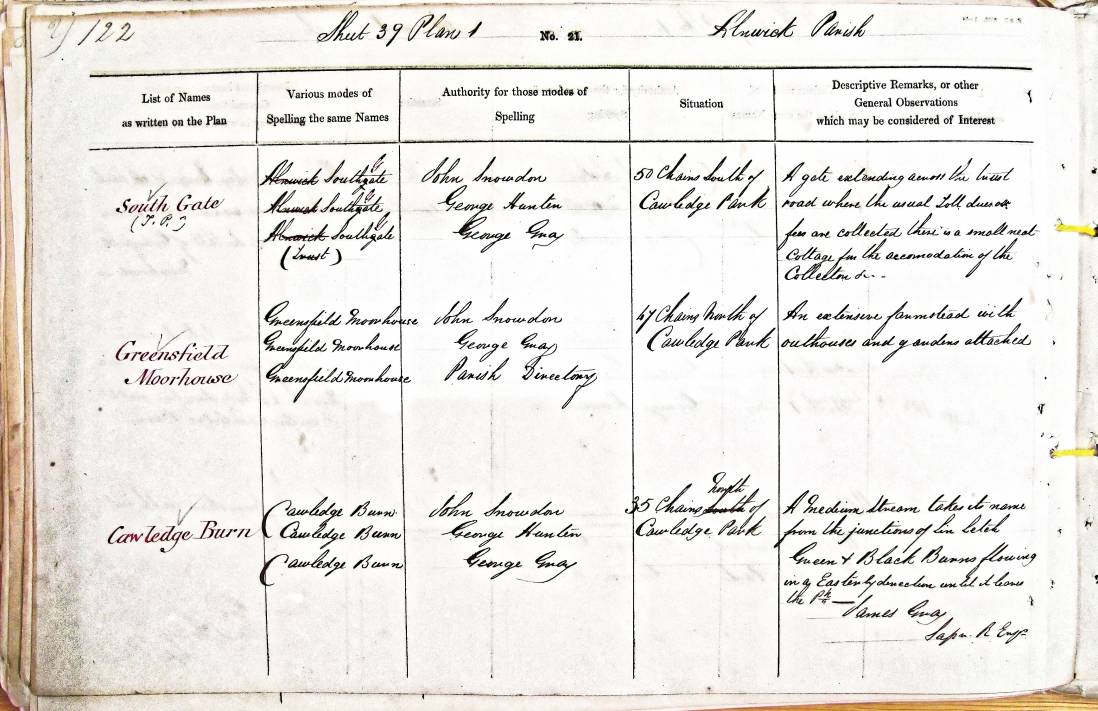 122 Sheet 39 Plan 1 No. 21. Alnwick Parish
List of Names
as written on the Plan
Various modes of
Spelling the same Names
Authority for those modes of
Spelling
Situation
Descriptive Remarks, or other
General Observations
which may be considered of Interest
South Gate
(T. P.)
Alnwick Southgate
Alnwick Southgate
Alnwick Southgate
(Trust)
John Snowdon
George Hunter
George Gray
50 Chains South of
Cawledge Park
A gate extending across the Trust
road where the usual Toll dues or
fees are collected there is a small neat
Cottage for the accomodation of the
Collector &c.
Greensfield
Moorhouse
Greensfield Moorhouse
Greensfield Moorhouse
Greensfield Moorhouse
John Snowdon
George Gray
Parish Directory
47 Chains North of
Cawledge Park
An extensive farmstead with
outhouses and gardens attached
Cawledge Burn
Cawledge Burn
Cawledge Burn
Cawledge Burn
John Snowdon
George Hunter
George Gray
North
35 Chains South of
Cawledge Park
A Medium Stream takes its name
from the junctions of Lin Letch
Green & Black Burns flowing
in an Easterly direction until it leaves
the Ph
James Gray
Sapr. R Engr